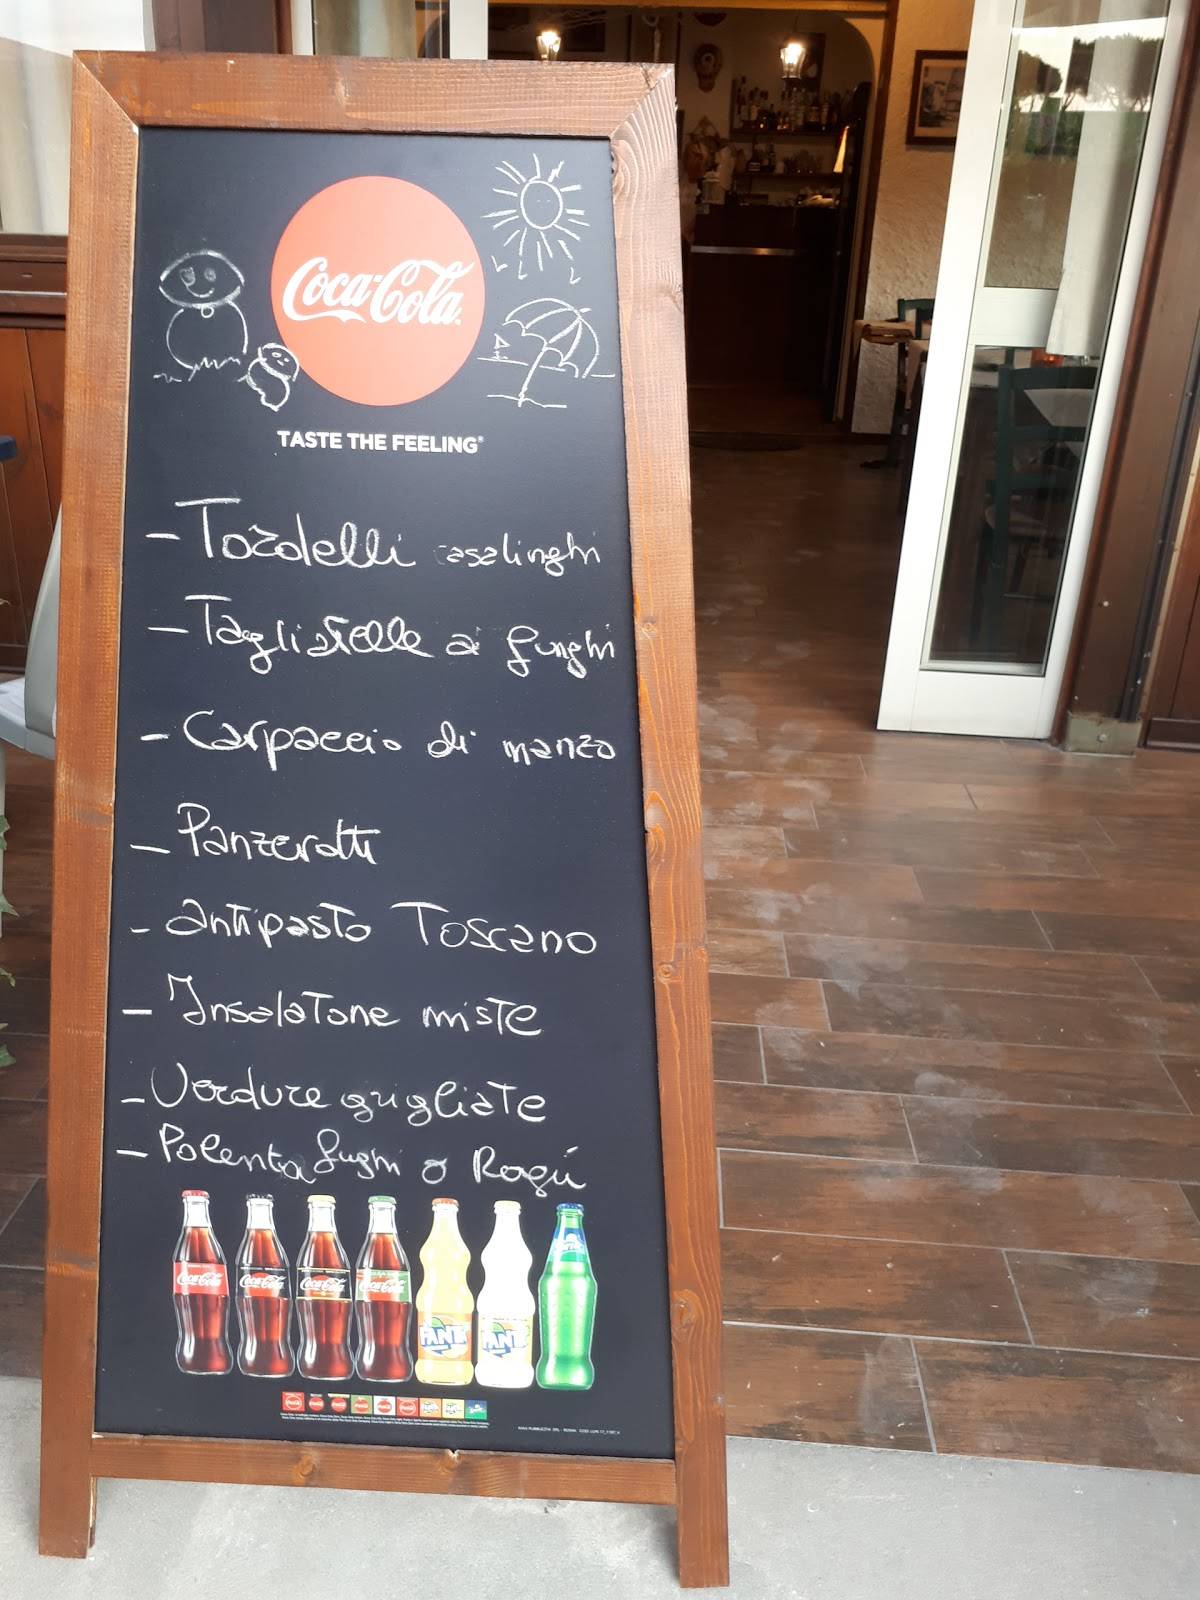 Coca-Cola
TASTE THE FEELING
- Tordelli casalinghi
- Tagliatelle ai funghi
- Carpaccio di manzo
- Panzerotti
- Antipasto Toscano
- Insalatone miste
- Verdure grigliate
- Polenta funghi o Ragù
Coca-Cola Coca-Cola Coca-Cola Coca-Cola FANTA FANTA Sprite